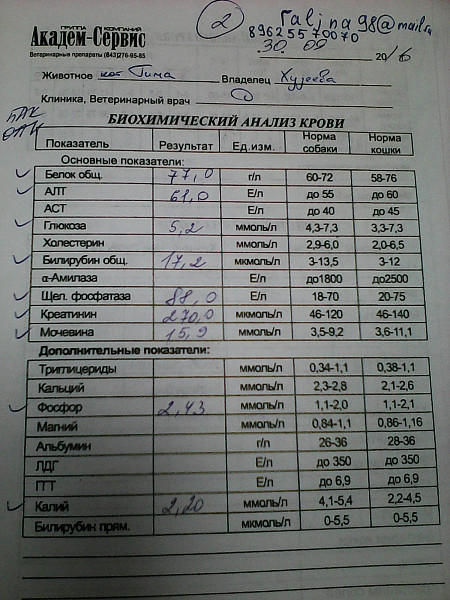 ② Galina98@mail.ru
89625570070
ГРУППА КОМПАНИЙ
Академ-Сервис
Ветеринарные препараты (843)276-95-85
30. 09 2016
Животное кот Тима Владелец
Клиника, Ветеринарный врач
БАК
ОАК
БИОХИМИЧЕСКИЙ АНАЛИЗ КРОВИ
Показатель Результат Ед.изм. Норма собаки Норма кошки
Основные показатели:
Белок общ. 77,0 г/л 60-72 58-76
АЛТ 61,0 Е/л до 55 до 60
АСТ Е/л до 40 до 45
Глюкоза 5,2 ммоль/л 4,3-7,3 3,3-7,3
Холестерин ммоль/л 2,9-6,0 2,0-6,5
Билирубин общ. 17,2 мкмоль/л 3-13,5 3-12
α-Амилаза Е/л до1800 до2500
Щел. фосфатаза 88,0 Е/л 18-70 20-75
Креатинин 270,0 мкмоль/л 46-120 46-140
Мочевина 15,9 ммоль/л 3,5-9,2 3,6-11,1
Дополнительные показатели:
Триглицериды ммоль/л 0,34-1,1 0,38-1,1
Кальций ммоль/л 2,3-2,8 2,1-2,6
Фосфор 2,43 ммоль/л 1,1-2,0 1,1-2,1
Магний ммоль/л 0,84-1,1 0,86-1,16
Альбумин г/л 26-36 28-36
ЛДГ Е/л до 350 до 350
ГГТ Е/л до 6,9 до 6,9
Калий 2,20 ммоль/л 4,1-5,4 2,2-4,5
Билирубин прям. мкмоль/л 0-5,5 0-5,5